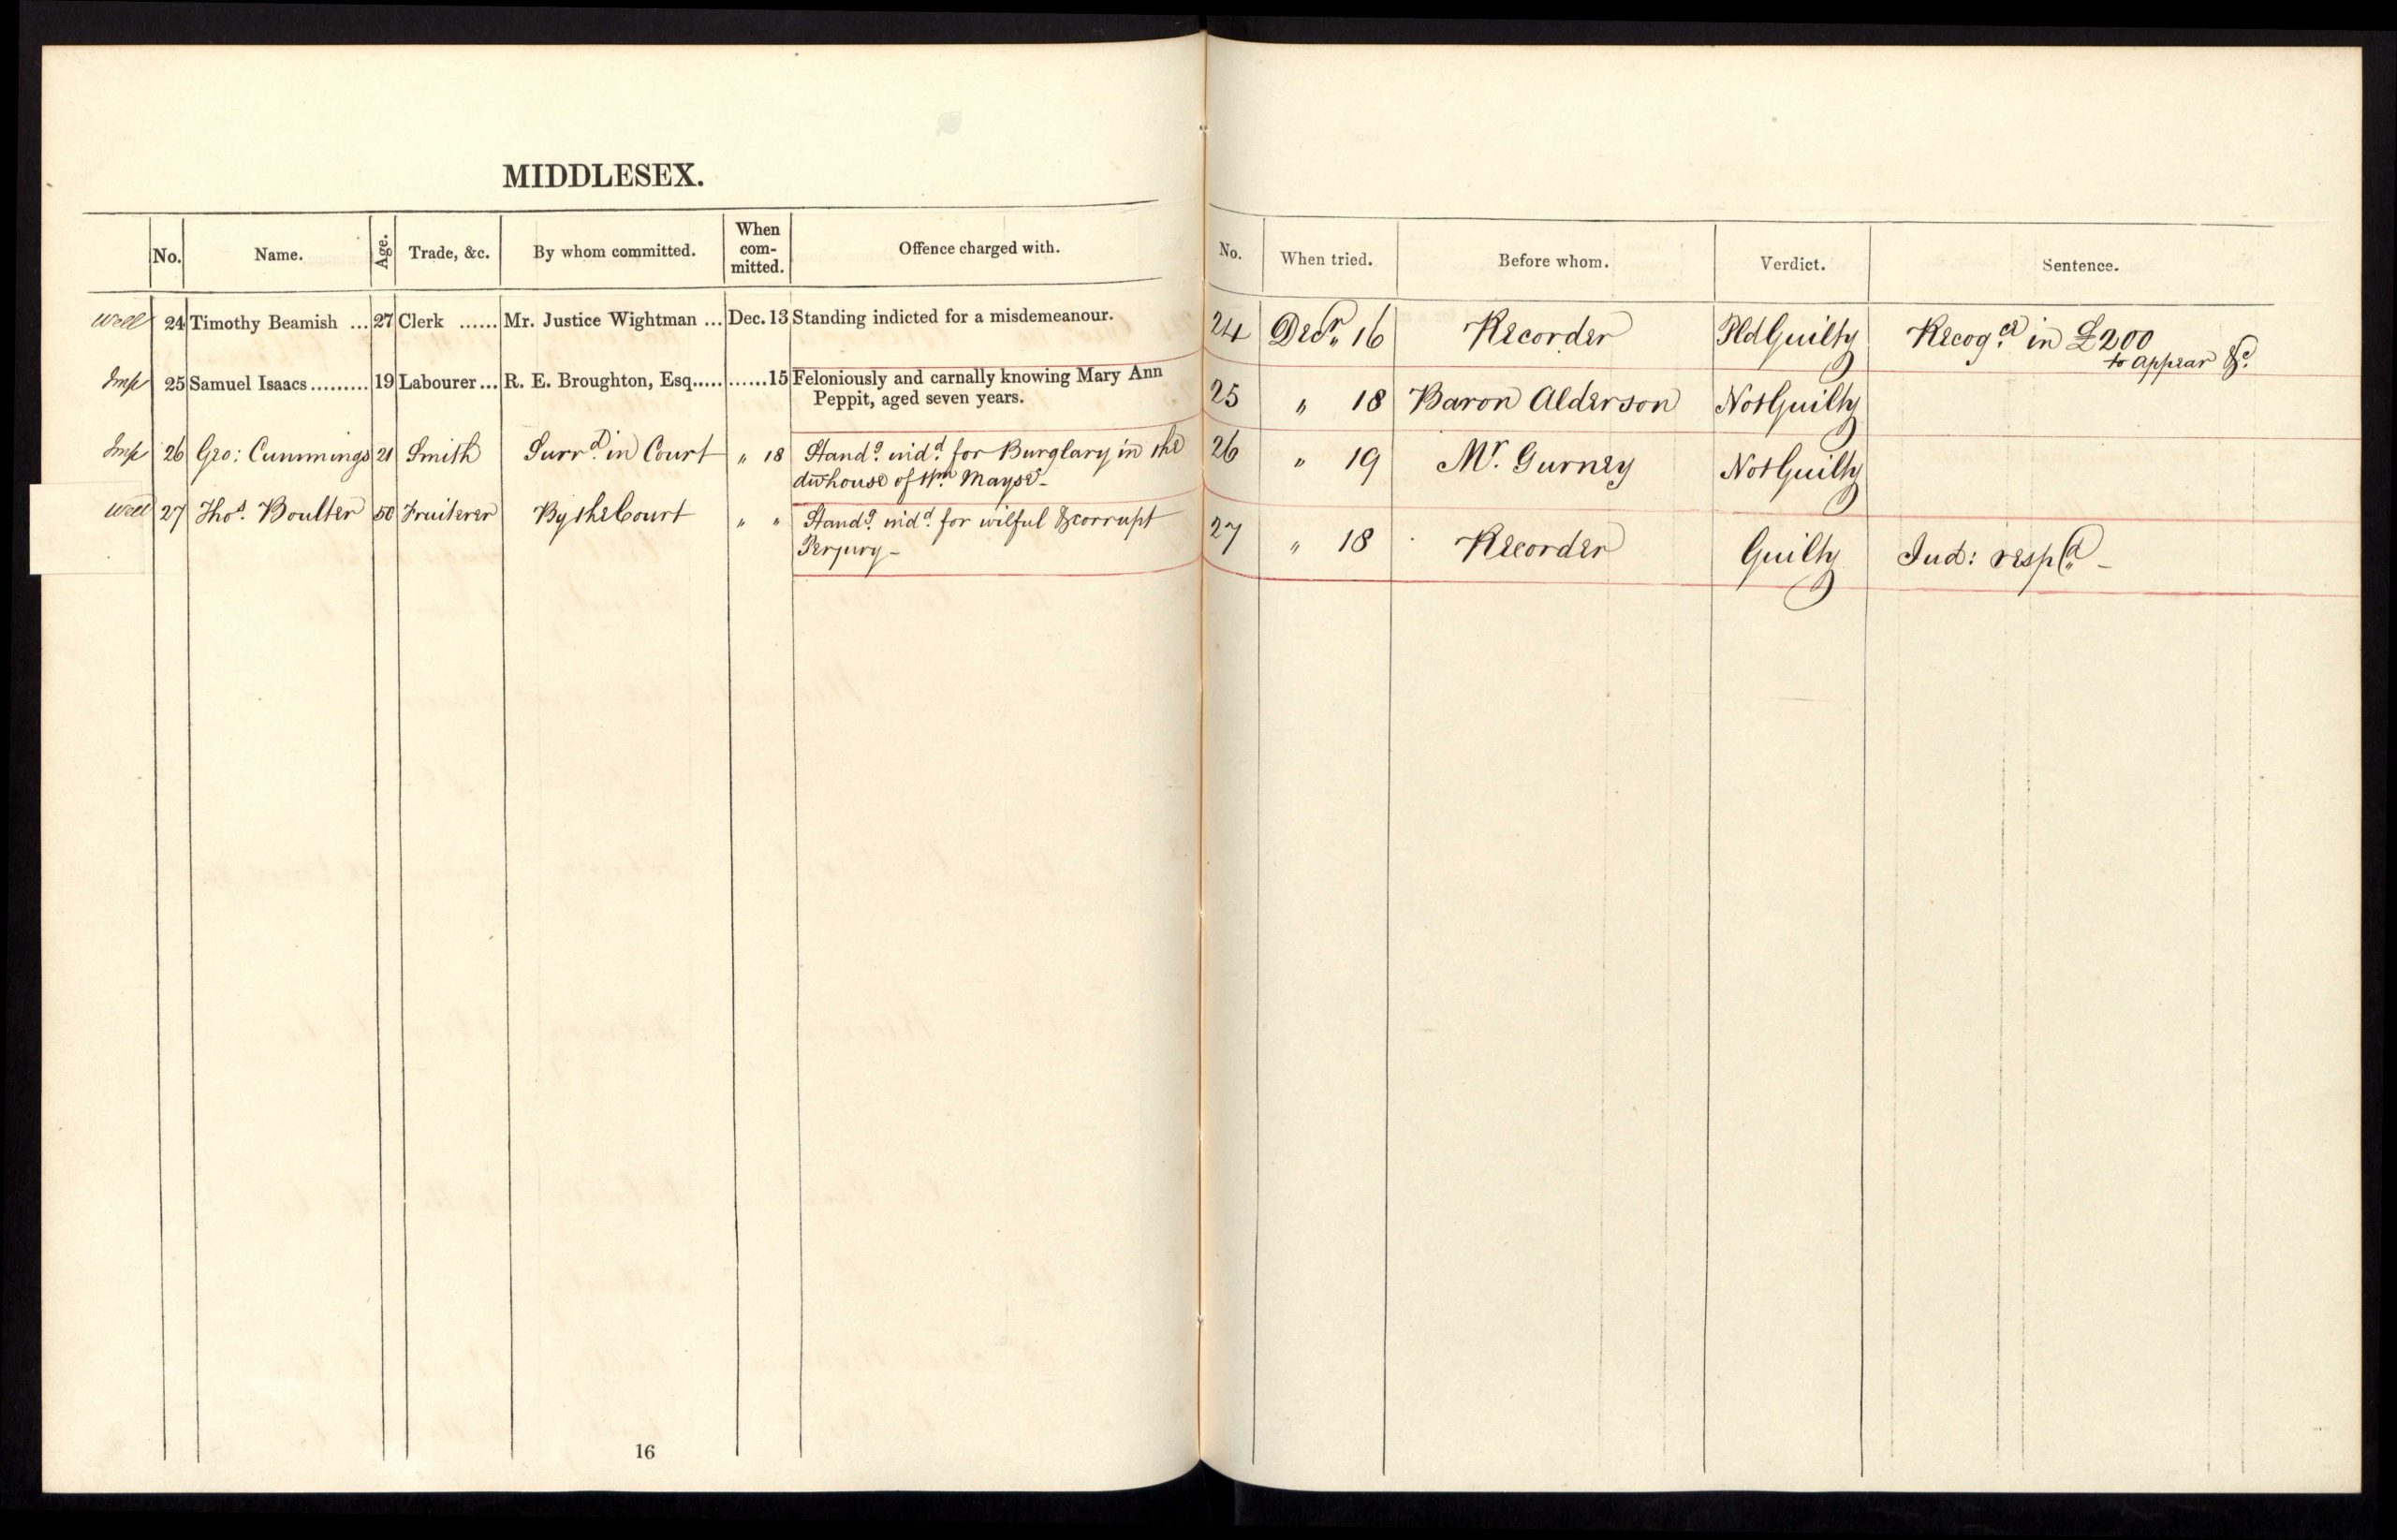 MIDDLESEX.
No. Name. Age. Trade, &c. By whom committed. When com-mitted. Offence charged with.
Well 24 Timothy Beamish ... 27 Clerk ...... Mr. Justice Wightman ... Dec. 13 Standing indicted for a misdemeanour.
Imp 25 Samuel Isaacs......... 19 Labourer... R. E. Broughton, Esq..... ......15 Feloniously and carnally knowing Mary Ann
Peppit, aged seven years.
Imp 26 Geo: Cummings 21 Smith Surrd. in Court " 18 Standg. indd. for Burglary in the
dwhouse of Wm Mayse-
Well 27 Thos. Boulter 50 Fruiterer By the Court " " Standg. indd. for wilful & corrupt
Perjury-
16
No. When tried. Before whom. Verdict. Sentence.
24 Decr. 16 Recorder Pld Guilty Recogce. in £200
to appear &c.
25 " 18 Baron Alderson Not Guilty
26 " 19 Mr. Gurney Not Guilty
27 " 18 Recorder Guilty Jud: respd. -